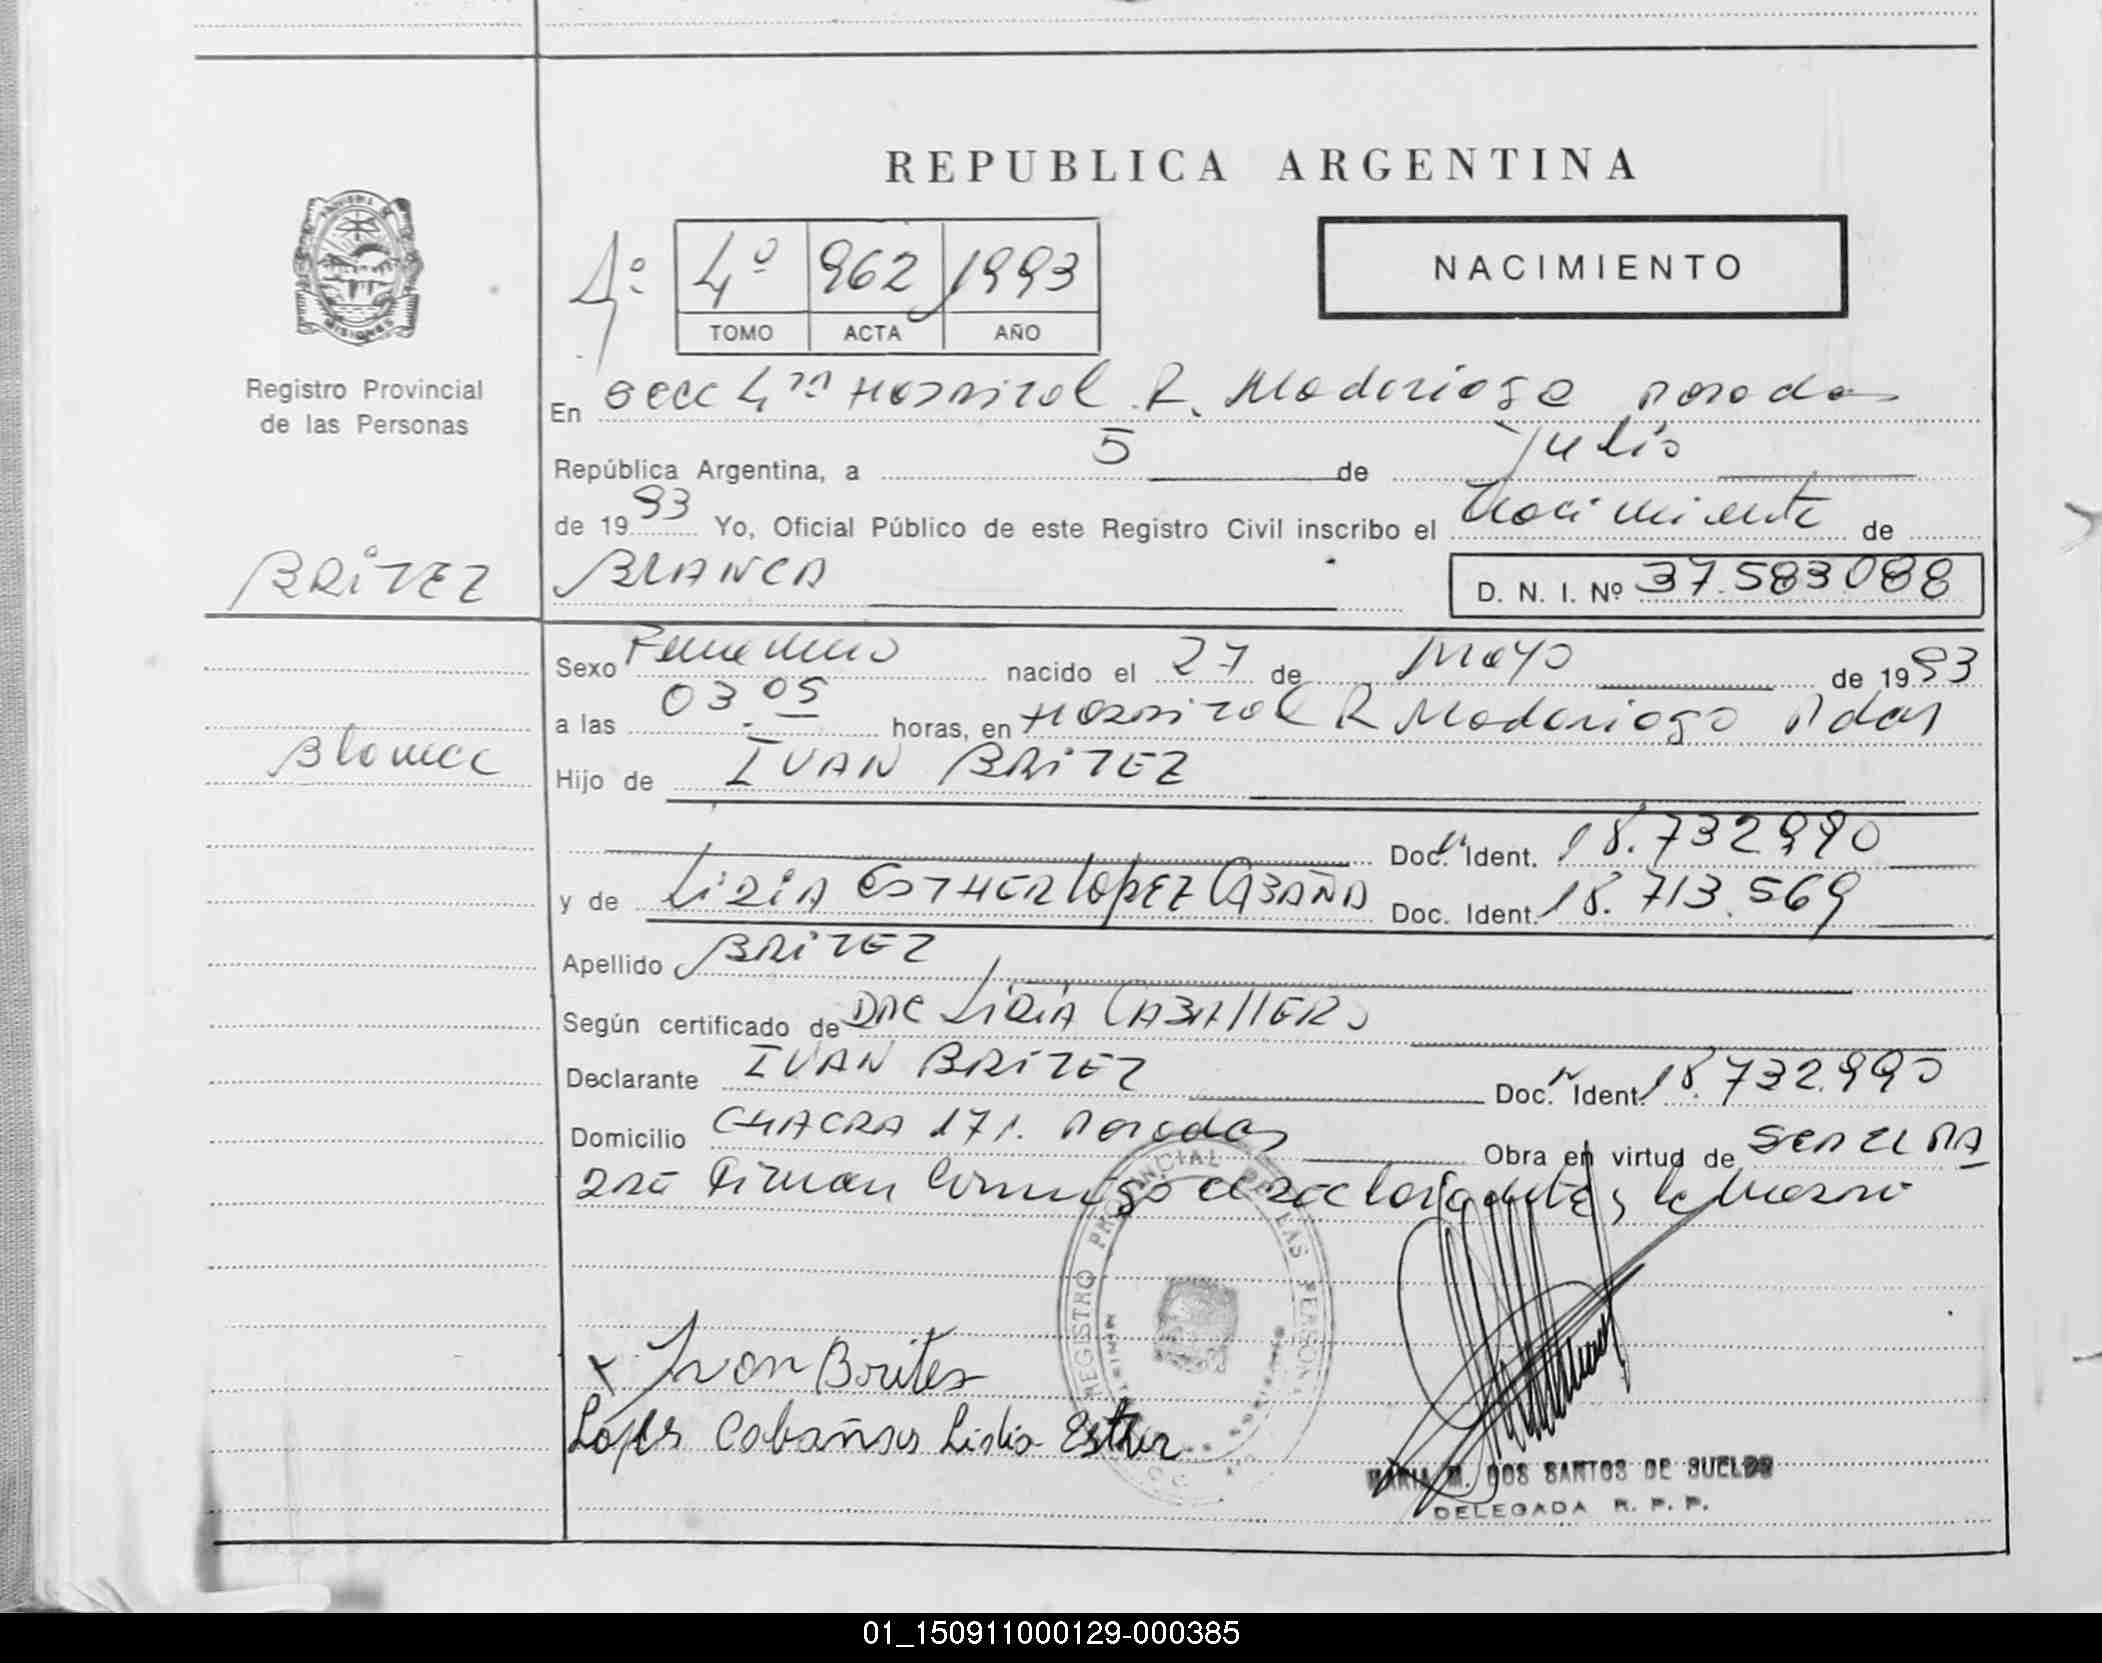 REPUBLICA ARGENTINA
PROVINCIA DE MISIONES
Registro Provincial
de las Personas
4º
4º 962 1993
TOMO ACTA AÑO
NACIMIENTO
En secc 4ta Hospital R. Madariaga Posadas
República Argentina, a 5 de Julio
de 1993 Yo, Oficial Público de este Registro Civil inscribo el Nacimiento de
BRÍTEZ BLANCA D. N. I. Nº 37.583.088
Sexo Femenino nacido el 27 de Mayo de 1993
a las 03.05 horas, en Hospital R Madariaga Pdas
Blanca
Hijo de IVAN BRITEZ
Doc. Ident. 18.732.990
y de ESTHER LOPEZ CABAÑA Doc. Ident. 18.713.569
Apellido BRITEZ
Según certificado de CABALLERO
Declarante IVAN BRITEZ Doc. Ident. 18.732.990
Domicilio CHACRA 171. Posadas Obra en virtud de SER EL PA
DRE Firman conmigo el declarante y la
REGISTRO PROVINCIAL DE LAS PERSONAS
Ivan Brites
Lopes Cabañas Lidia Esther
MARIA M. DOS SANTOS DE SUELDO
DELEGADA R. P. P.
01_150911000129-000385